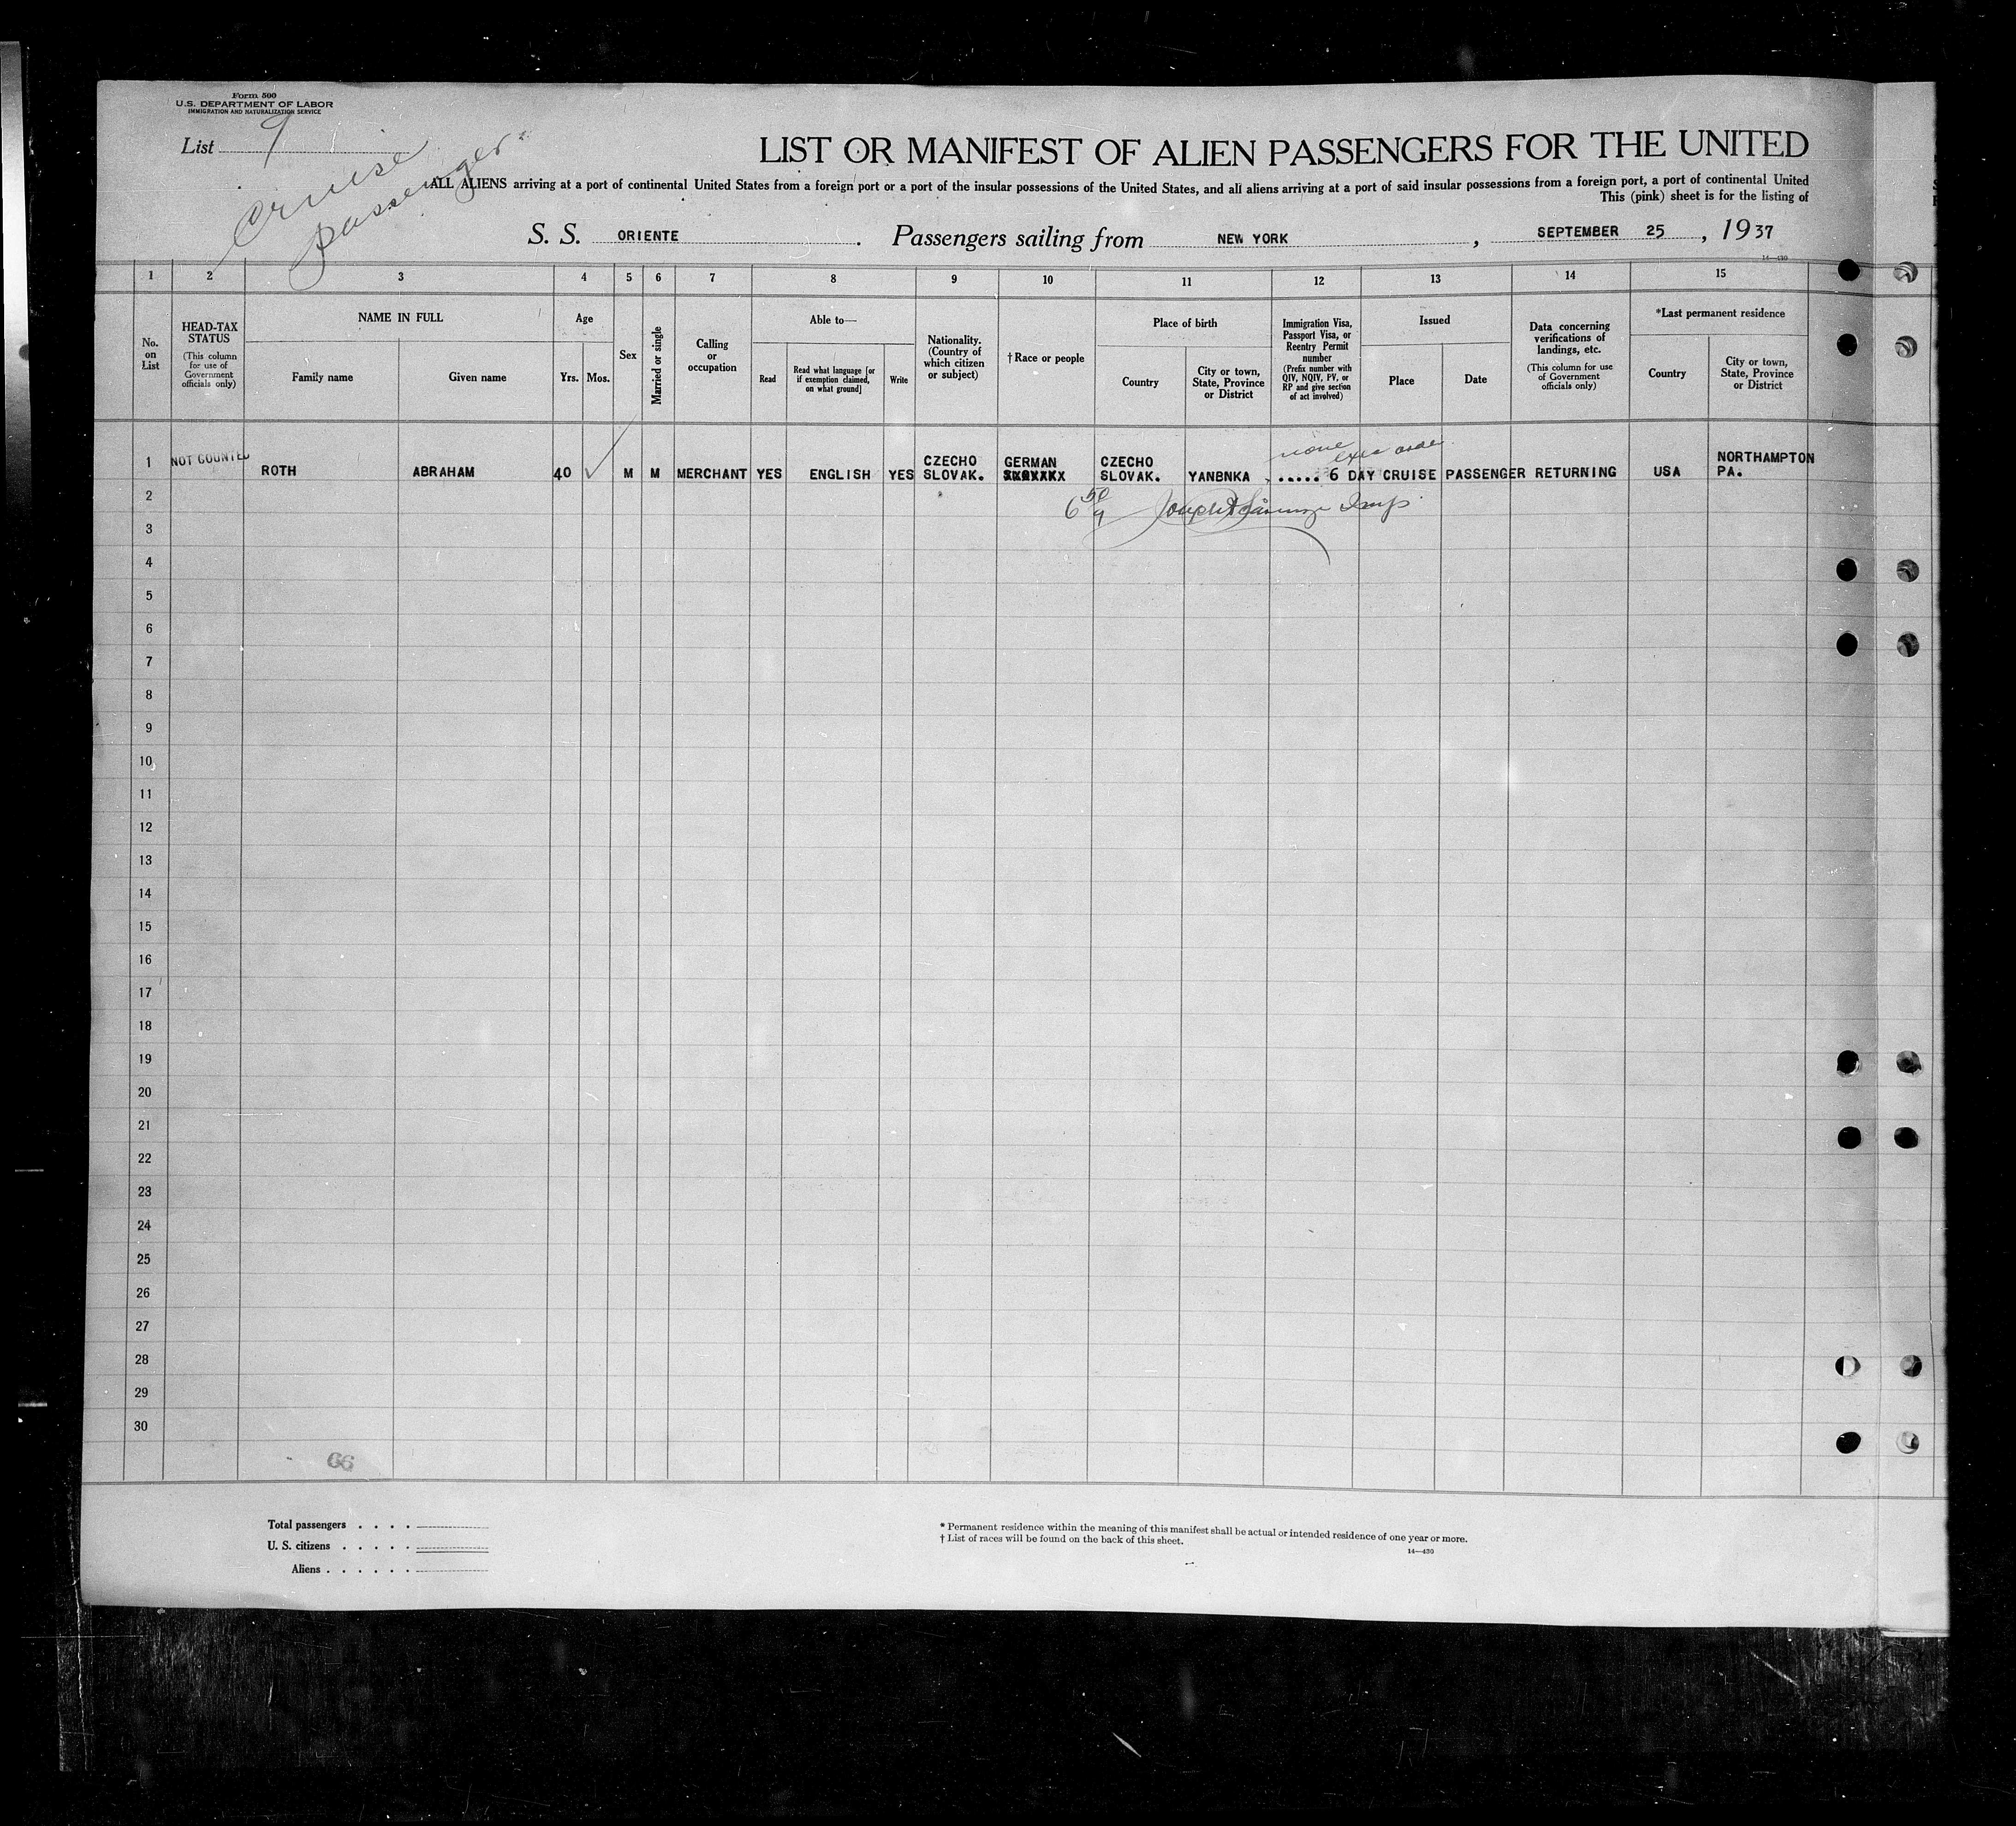 Form 500
U.S. DEPARTMENT OF LABOR
IMMIGRATION AND NATURALIZATION SERVICE
List 9
Cruise
passenger
LIST OR MANIFEST OF ALIEN PASSENGERS FOR THE UNITED
ALL ALIENS arriving at a port of continental United States from a foreign port or a port of the insular possessions of the United States, and all aliens arriving at a port of said insular possessions from a foreign port, a port of continental United
This (pink) sheet is for the listing of
S. S. ORIENTE . Passengers sailing from NEW YORK , SEPTEMBER 25 , 19 37
14—430
1 2 3 4 5 6 7 8 9 10 11 12 13 14 15
No. on List
HEAD-TAX STATUS
(This column for use of Government officials only)
NAME IN FULL
Family name Given name
Age
Yrs. Mos.
Sex
Married or single
Calling or occupation
Able to—
Read
Read what language [or if exemption claimed, on what ground]
Write
Nationality. (Country of which citizen or subject)
† Race or people
Place of birth
Country
City or town, State, Province or District
Immigration Visa, Passport Visa, or Reentry Permit number
(Prefix number with QIV, NQIV, PV, or RP and give section of act involved)
Issued
Place Date
Data concerning verifications of landings, etc.
(This column for use of Government officials only)
*Last permanent residence
Country
City or town, State, Province or District
none
1 NOT COUNTED ROTH ABRAHAM 40 ✓ M M MERCHANT YES ENGLISH YES CZECHO SLOVAK. GERMAN CZECHO SLOVAK. YANBNKA ..... 6 DAY CRUISE PASSENGER RETURNING USA NORTHAMPTON PA.
2
6 50/9
3
4
5
6
7
8
9
10
11
12
13
14
15
16
17
18
19
20
21
22
23
24
25
26
27
28
29
30
66
Total passengers . . . .
U. S. citizens . . . . .
Aliens . . . . . .
* Permanent residence within the meaning of this manifest shall be actual or intended residence of one year or more.
† List of races will be found on the back of this sheet.
14—430